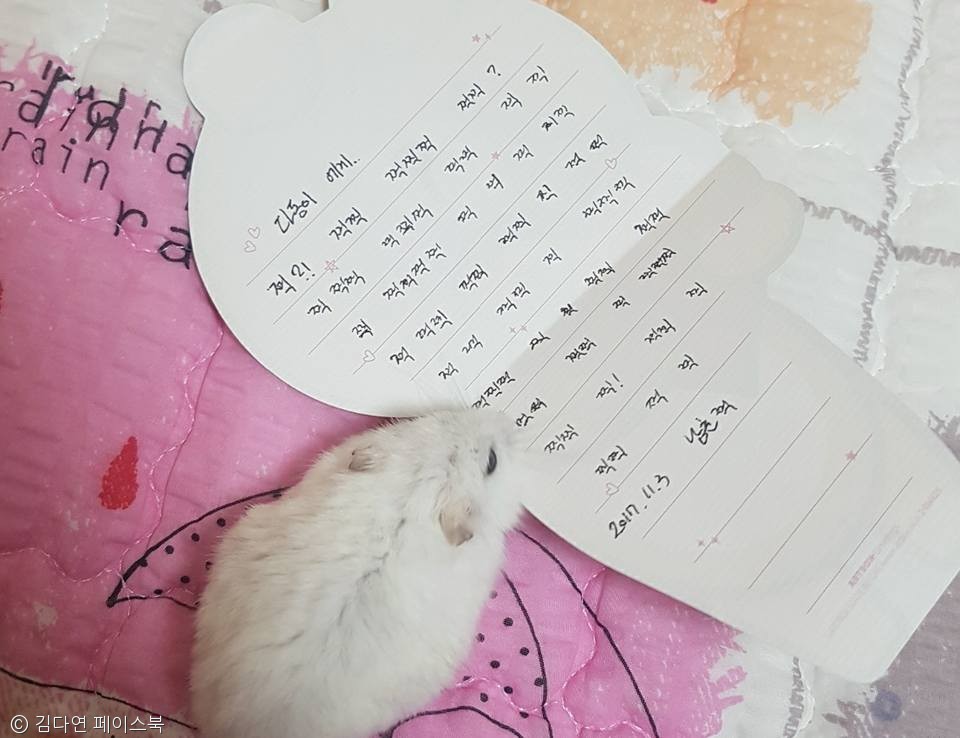 찍?! 찍찍 찍찍찍 찍찍?
찍 찍찍 찍 찍찍 찍찍 찍 찍
찍 찍찍찍 찍 찍 찍 찍 찌직
찍 찍찍 찍찍 찍찍 찍 찍 찍
찍 찍 찍찍찍 찍 찍찍찍찍
찍찍찍찍 찍 찍 찍찍 찍찍
찍찍 찍찍 찍 찍찍찍
찍찍 찍! 찍찍 찍
찍찍 찍 찍
2017.11.3
rain
ra
© 김다연 페이스북